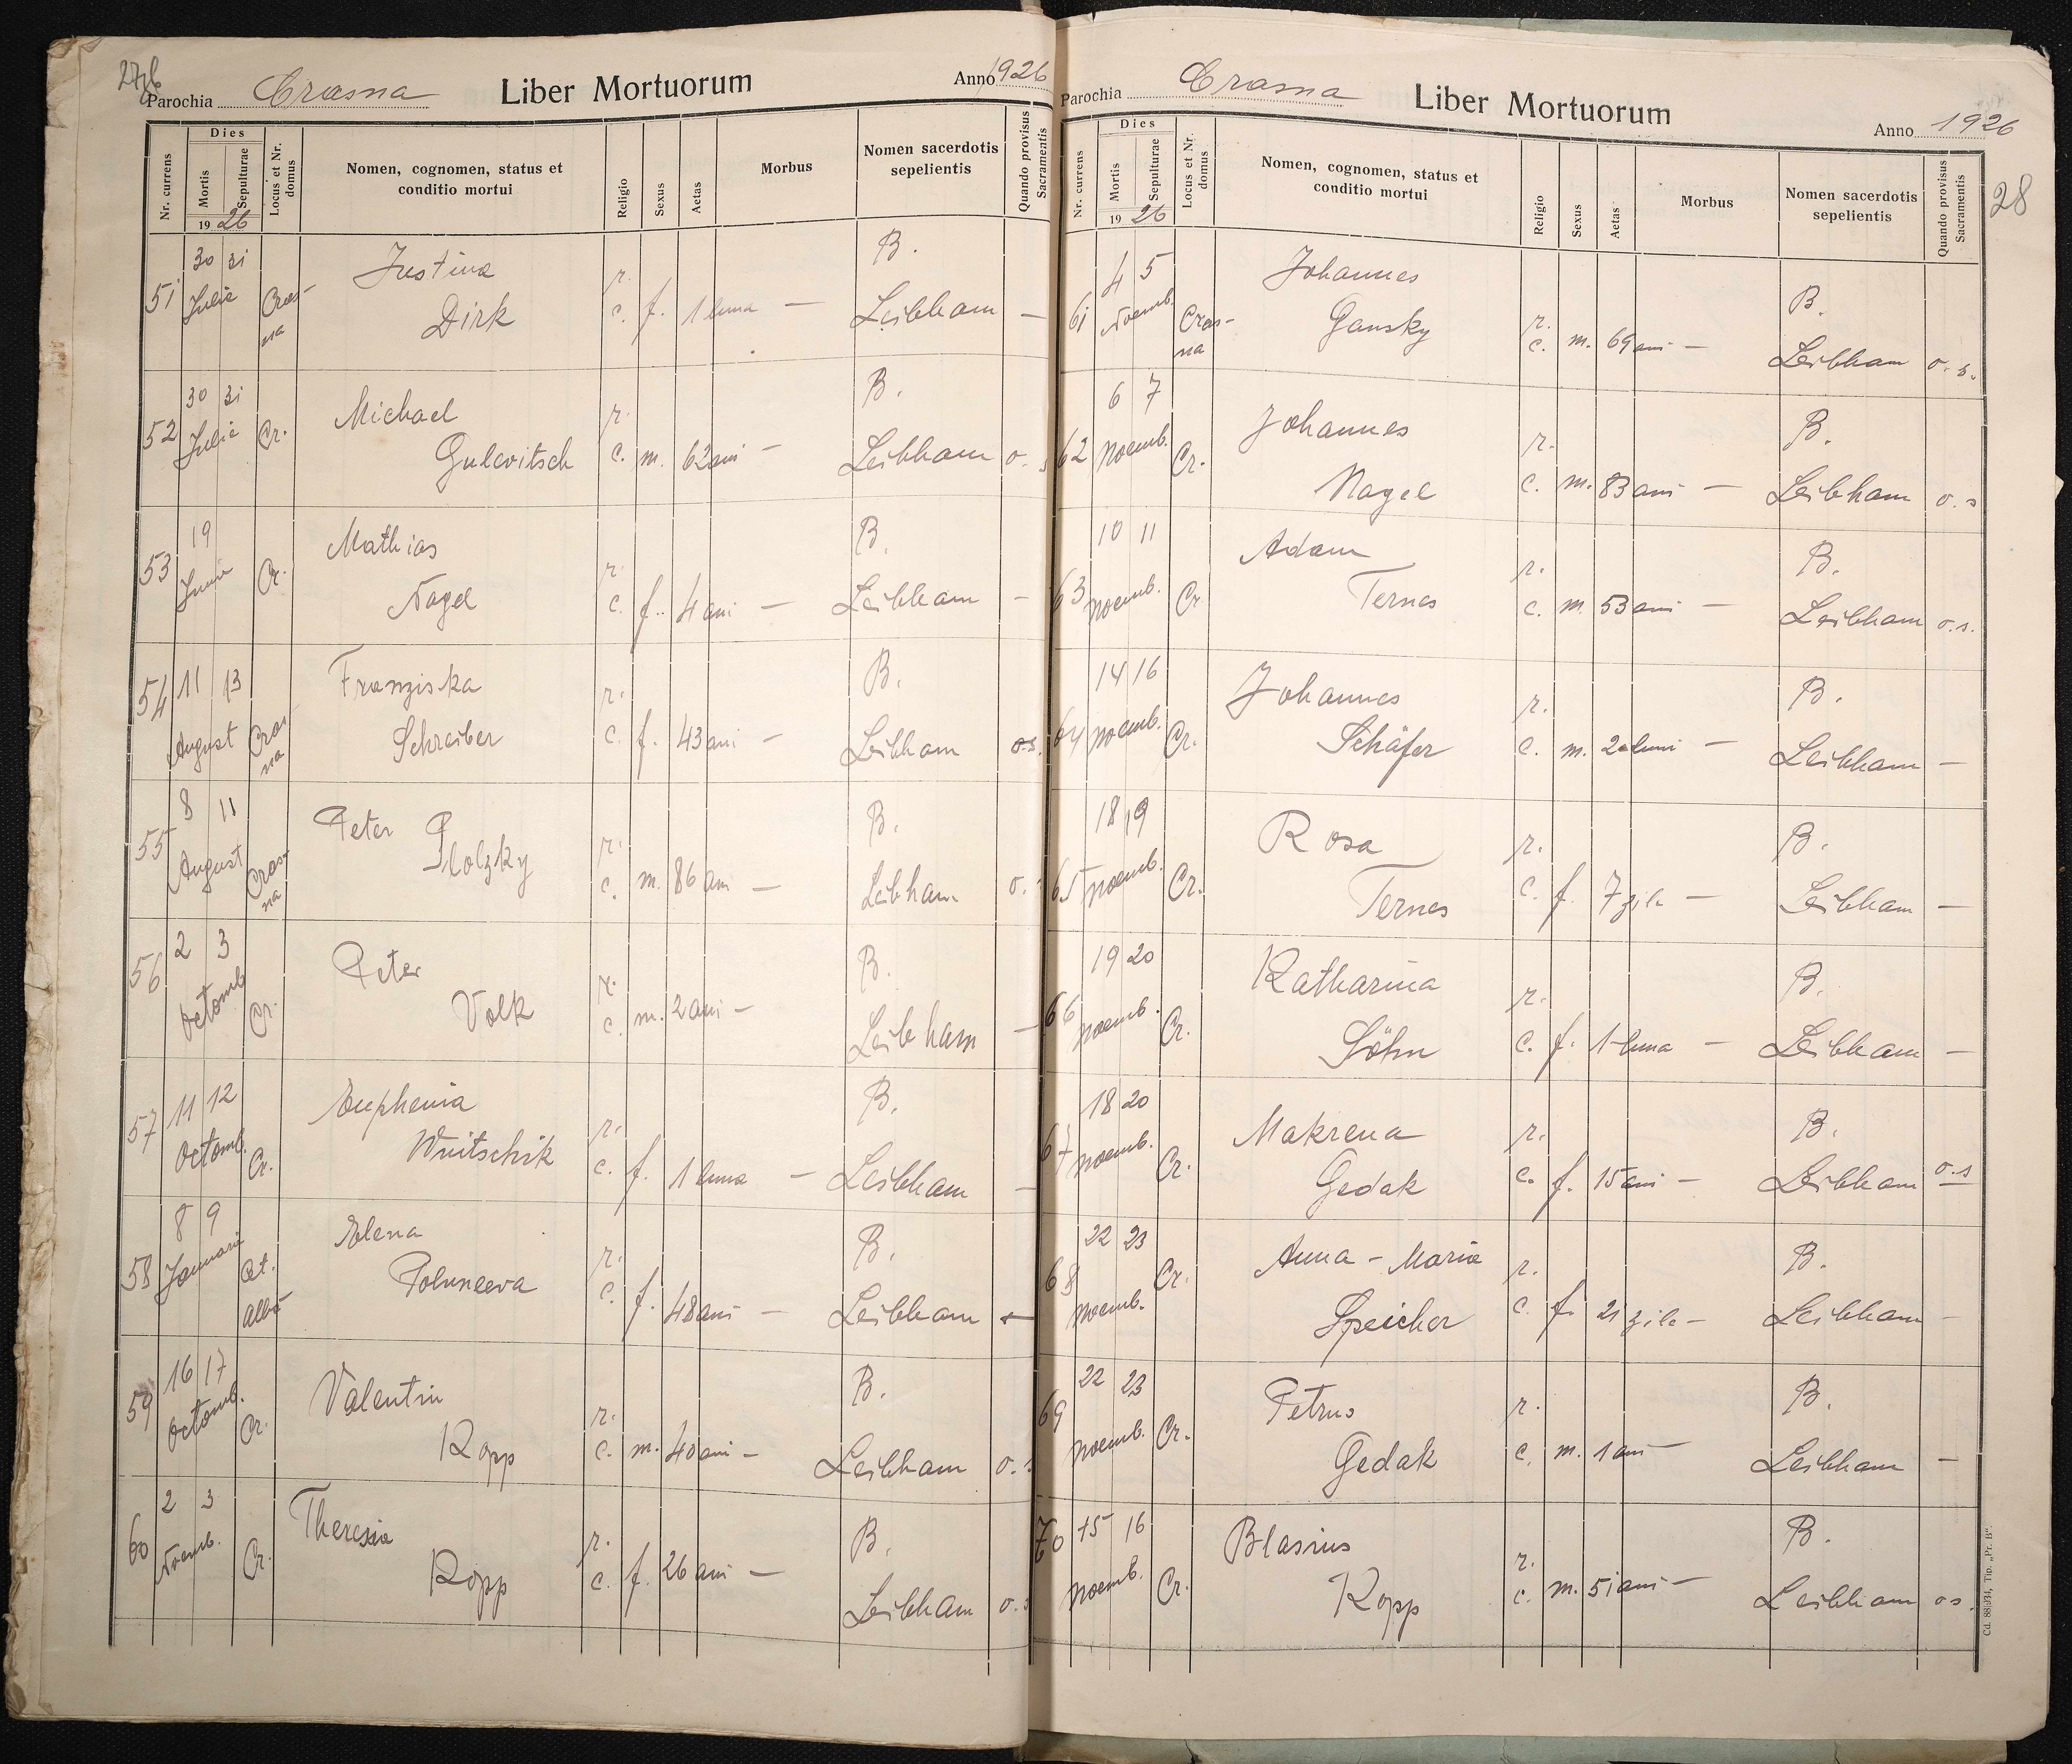 27b
Parochia Crasna Liber Mortuorum Anno 1926
Nr. currens
Dies
Mortis
Sepulturae
1926
Locus et Nr. domus
Nomen, cognomen, status et conditio mortui
Religio
Sexus
Aetas
Morbus
Nomen sacerdotis sepelientis
Quando provisus Sacramentis
51 30 31 Julie Cras-na Justina Dirk r. c. f. 1 luna — B. Leibham —
52 30 31 Julie Cr. Michael Gulevitsch r. c. m. 62 ani — B. Leibham o. s
53 19 Junie Cr. Mathias Nagel r. c. f. 4 ani — B. Leibham —
54 11 13 August Cras-na Franziska Schreiber r. c. f. 43 ani — B. Leibham o.s.
55 8 11 August Cras-na Peter Plolzky r. c. m. 86 ani — B. Leibham o.
56 2 3 Octomb Cr. Peter Volk r. c. m. 2 ani — B. Leibham —
57 11 12 Octomb. Cr. Euphenia Wuitschik r. c. f. 1 luna — B. Leibham —
58 8 9 Januarie Cet. Albă Elena r. c. f. 48 ani — B. Leibham —
59 16 17 Octomb. Cr. Valentin Kopp r. c. m. 40 ani — B. Leibham o. s
60 2 3 Noemb. Cr. Theresia Kopp r. c. f. 26 ani — B. Leibham o. s
Parochia Crasna Liber Mortuorum Anno 1926
28
Nr. currens
Dies
Mortis
Sepulturae
1926
Locus et Nr. domus
Nomen, cognomen, status et conditio mortui
Religio
Sexus
Aetas
Morbus
Nomen sacerdotis sepelientis
Quando provisus Sacramentis
61 4 5 Noemb. Cras-na Johannes Gansky r. c. m. 69 ani — B. Leibham o. s.
62 6 7 Noemb. Cr. Johannes Nagel r. c. m. 83 ani — B. Leibham o. s
63 10 11 Noemb. Cr Adam Ternes r. c. m. 53 ani — B. Leibham o. s.
64 14 16 Noemb. Cr. Johannes Schäfer r. c. m. 2 luni — B. Leibham —
65 18 19 Noemb. Cr. Rosa Ternes r. c. f. 7 zile — B. Leibham —
66 19 20 Noemb. Cr. Katharina Söhn r. c. f. 1 luna — B. Leibham —
67 18 20 Noemb. Cr. Makrena Gedak r. c. f. 15 ani — B. Leibham o. s
68 22 23 Noemb. Cr. Anna - Maria Speicher r. c. f. 21 zile — B. Leibham —
69 22 23 Noemb. Cr. Petrus Gedak r. c. m. 1 ani — B. Leibham —
70 15 16 Noemb. Cr. Blasius Kopp r. c. m. 51 ani — B. Leibham o s.
Cd. 88934, Tip. „Pr. B".